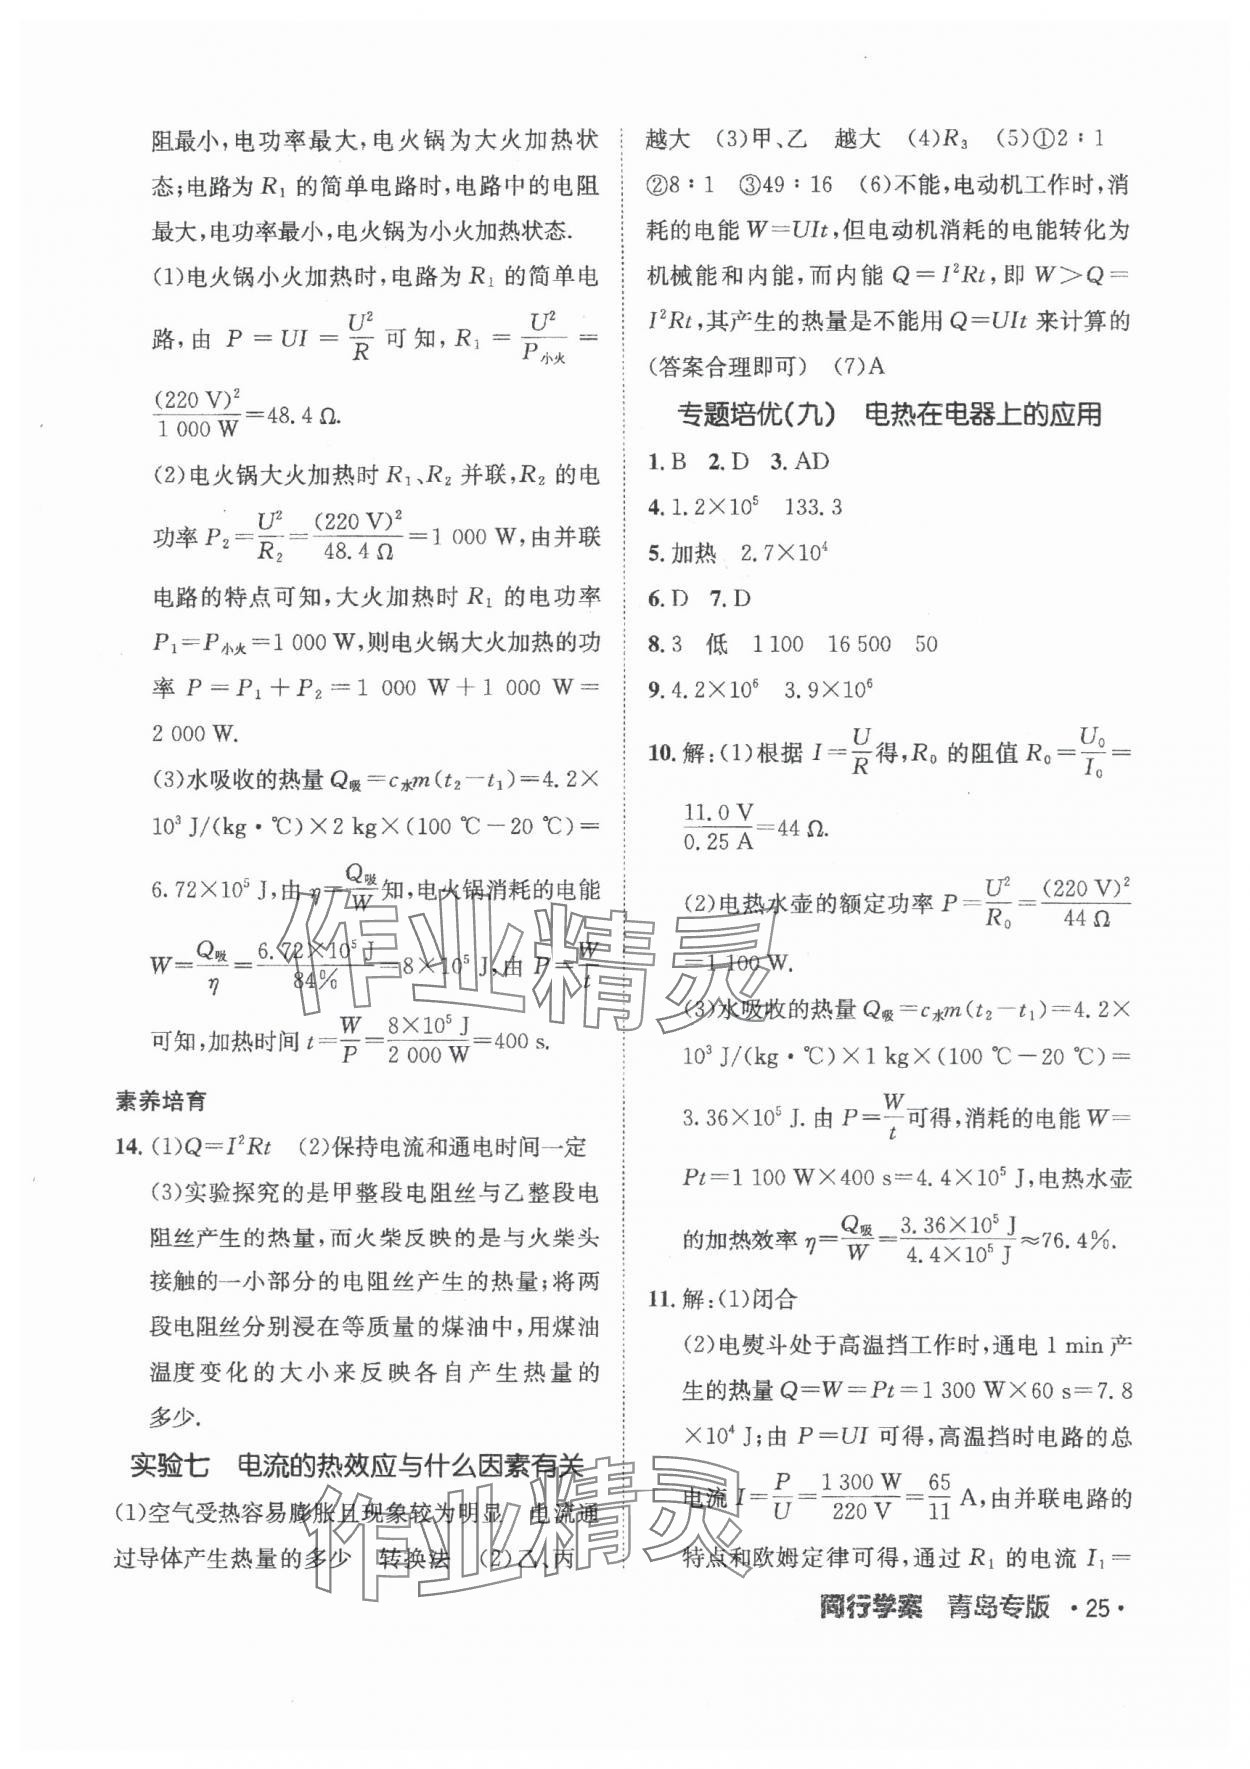 阻最小,电功率最大,电火锅为大火加热状
态;电路为 R₁ 的简单电路时,电路中的电阻
最大,电功率最小,电火锅为小火加热状态.
(1)电火锅小火加热时,电路为 R₁ 的简单电
路,由 P=UI=U²/R 可知,R₁=U²/P小火=
(220 V)²/1 000 W=48.4 Ω.
(2)电火锅大火加热时 R₁、R₂ 并联,R₂ 的电
功率 P₂=U²/R₂=(220 V)²/48.4 Ω=1 000 W,由并联
电路的特点可知,大火加热时 R₁ 的电功率
P₁=P小火=1 000 W,则电火锅大火加热的功
率 P=P₁+P₂=1 000 W+1 000 W=
2 000 W.
(3)水吸收的热量 Q吸=c水m(t₂-t₁)=4.2×
10³ J/(kg·℃)×2 kg×(100 ℃-20 ℃)=
6.72×10⁵ J,由 η=Q吸/W知,电火锅消耗的电能
W=Q吸/η=6.72×10⁵ J/84%=8×10⁵ J,由 P=W/t
可知,加热时间 t=W/P=8×10⁵ J/2 000 W=400 s.
素养培育
14.(1)Q=I²Rt (2)保持电流和通电时间一定
(3)实验探究的是甲整段电阻丝与乙整段电
阻丝产生的热量,而火柴反映的是与火柴头
接触的一小部分的电阻丝产生的热量;将两
段电阻丝分别浸在等质量的煤油中,用煤油
温度变化的大小来反映各自产生热量的
多少.
实验七 电流的热效应与什么因素有关
(1)空气受热容易膨胀且现象较为明显 电流通
过导体产生热量的多少 转换法 (2)乙、丙
越大 (3)甲、乙 越大 (4)R₃ (5)①2∶1
②8∶1 ③49∶16 (6)不能,电动机工作时,消
耗的电能 W=UIt,但电动机消耗的电能转化为
机械能和内能,而内能 Q=I²Rt,即 W>Q=
I²Rt,其产生的热量是不能用 Q=UIt 来计算的
(答案合理即可) (7)A
专题培优(九) 电热在电器上的应用
1.B 2.D 3.AD
4.1.2×10⁵ 133.3
5.加热 2.7×10⁴
6.D 7.D
8.3 低 1 100 16 500 50
9.4.2×10⁶ 3.9×10⁶
10.解:(1)根据 I=U/R得,R₀ 的阻值 R₀=U₀/I₀=
11.0 V/0.25 A=44 Ω.
(2)电热水壶的额定功率 P=U²/R₀=(220 V)²/44 Ω
=1 100 W.
(3)水吸收的热量 Q吸=c水m(t₂-t₁)=4.2×
10³ J/(kg·℃)×1 kg×(100 ℃-20 ℃)=
3.36×10⁵ J.由 P=W/t可得,消耗的电能 W=
Pt=1 100 W×400 s=4.4×10⁵ J,电热水壶
的加热效率 η=Q吸/W=3.36×10⁵ J/4.4×10⁵ J≈76.4%.
11.解:(1)闭合
(2)电熨斗处于高温挡工作时,通电 1 min 产
生的热量 Q=W=Pt=1 300 W×60 s=7.8
×10⁴ J;由 P=UI 可得,高温挡时电路的总
电流 I=P/U=1 300 W/220 V=65/11 A,由并联电路的
特点和欧姆定律可得,通过 R₁ 的电流 I₁=
同行学案 青岛专版 ·25·
作业精灵
作业精灵